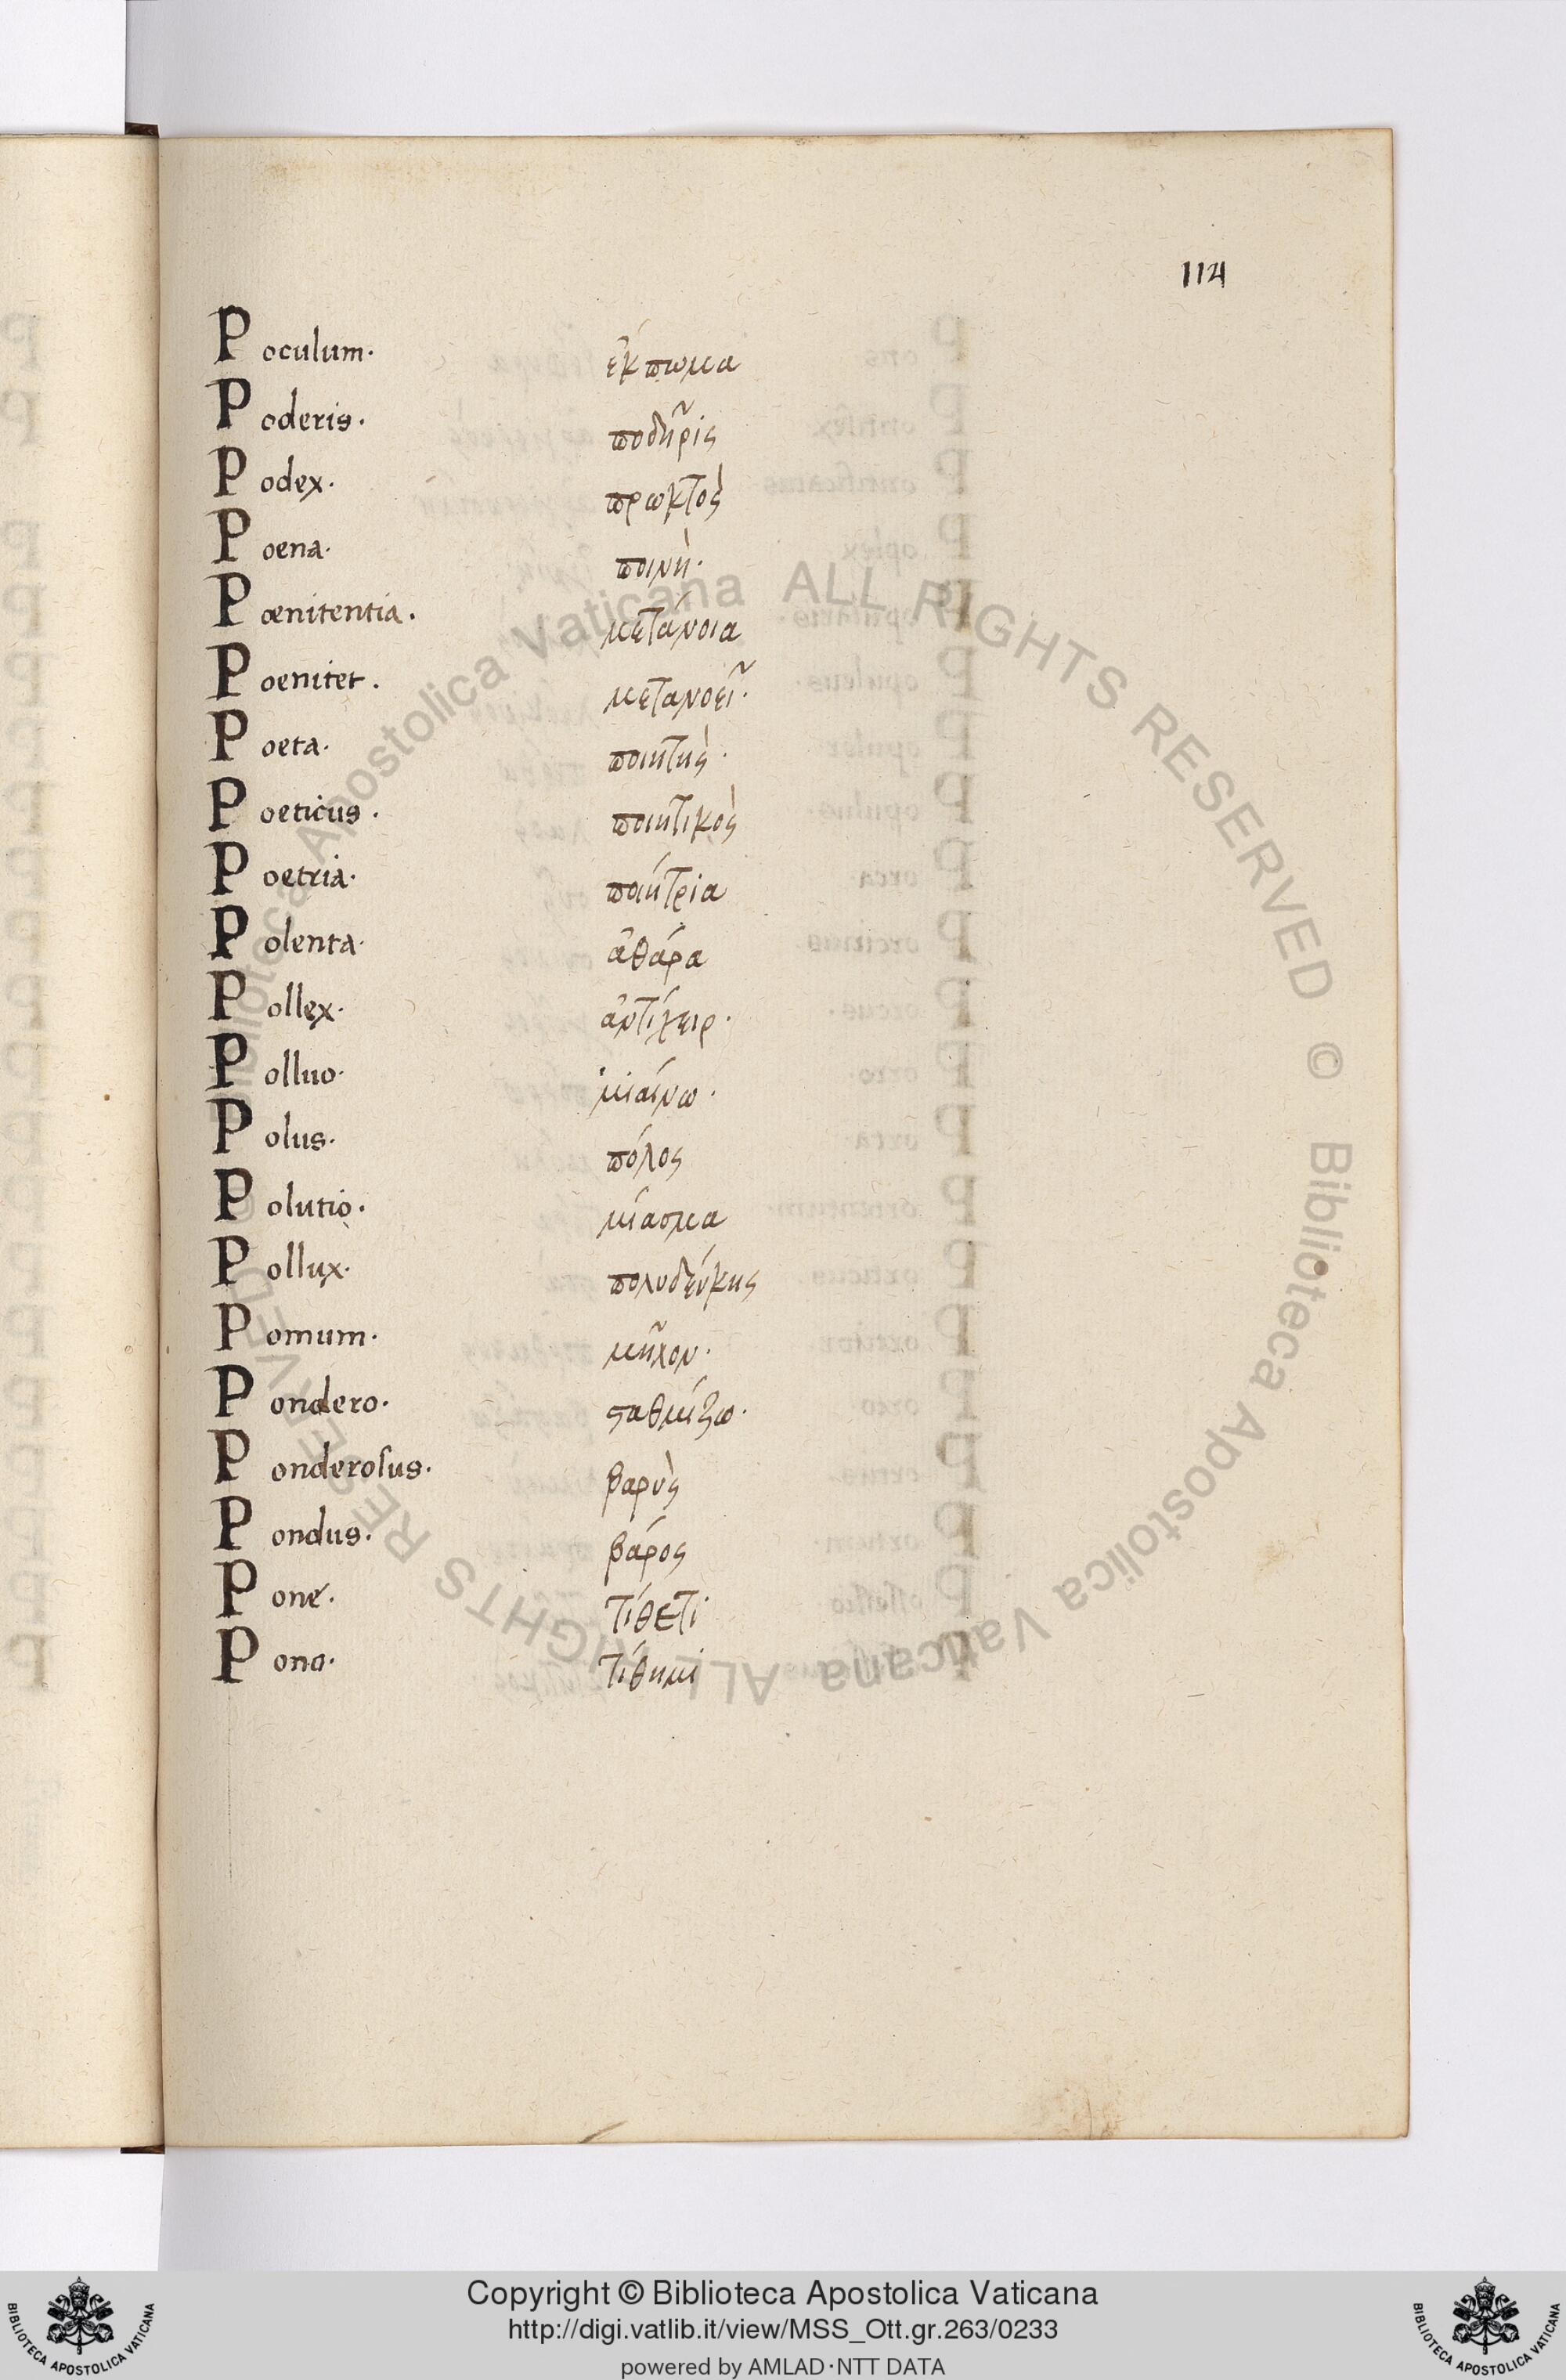 114
Poculum. ἔκπωμα
Poderis. ποδῆρις
Podex. πρωκτὸς
Poena. ποινὴ.
Pœnitentia. μετάνοια
Poenitet. μετανοεῖ.
Poeta. ποιητὴς.
Poeticus. ποιητικὸς
Poetria. ποιήτρια
Polenta. ἀθάρα
Pollex. ἀντίχειρ.
Polluo. μιαίνω.
Polus. πόλος
Polutio. μίασμα
Pollux. πολυδεύκης
Pomum. μῆλον.
Pondero. ϛαθμίζω.
Ponderosus. βαρὺς
Pondus. βάρος
Pone. τίθετι
Pono. τίθημι
Biblioteca Apostolica Vaticana ALL RIGHTS RESERVED © Biblioteca Apostolica Vaticana ALL RIGHTS RESERVED ©
Copyright © Biblioteca Apostolica Vaticana
http://digi.vatlib.it/view/MSS_Ott.gr.263/0233
powered by AMLAD·NTT DATA
BIBLIOTECA APOSTOLICA VATICANA
BIBLIOTECA APOSTOLICA VATICANA